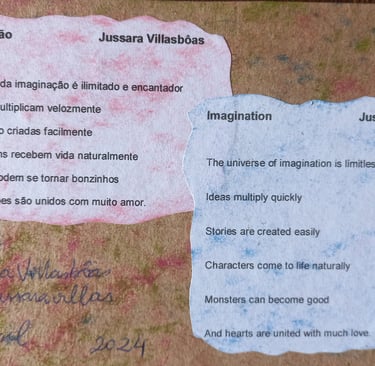 ão Jussara Villasbôas
da imaginação é ilimitado e encantador
ultiplicam velozmente
o criadas facilmente
ns recebem vida naturalmente
odem se tornar bonzinhos
es são unidos com muito amor.
Imagination Jus
The universe of imagination is limitles
Ideas multiply quickly
Stories are created easily
Characters come to life naturally
Monsters can become good
And hearts are united with much love
a Villasbôas
ussaravillas
2024